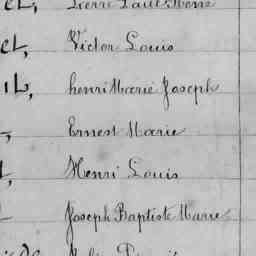 et, Pierre Paul Marie
et, Victor Louis
il, henri Marie Joseph
Ernest Marie
Henri Louis
Joseph Baptiste Marie